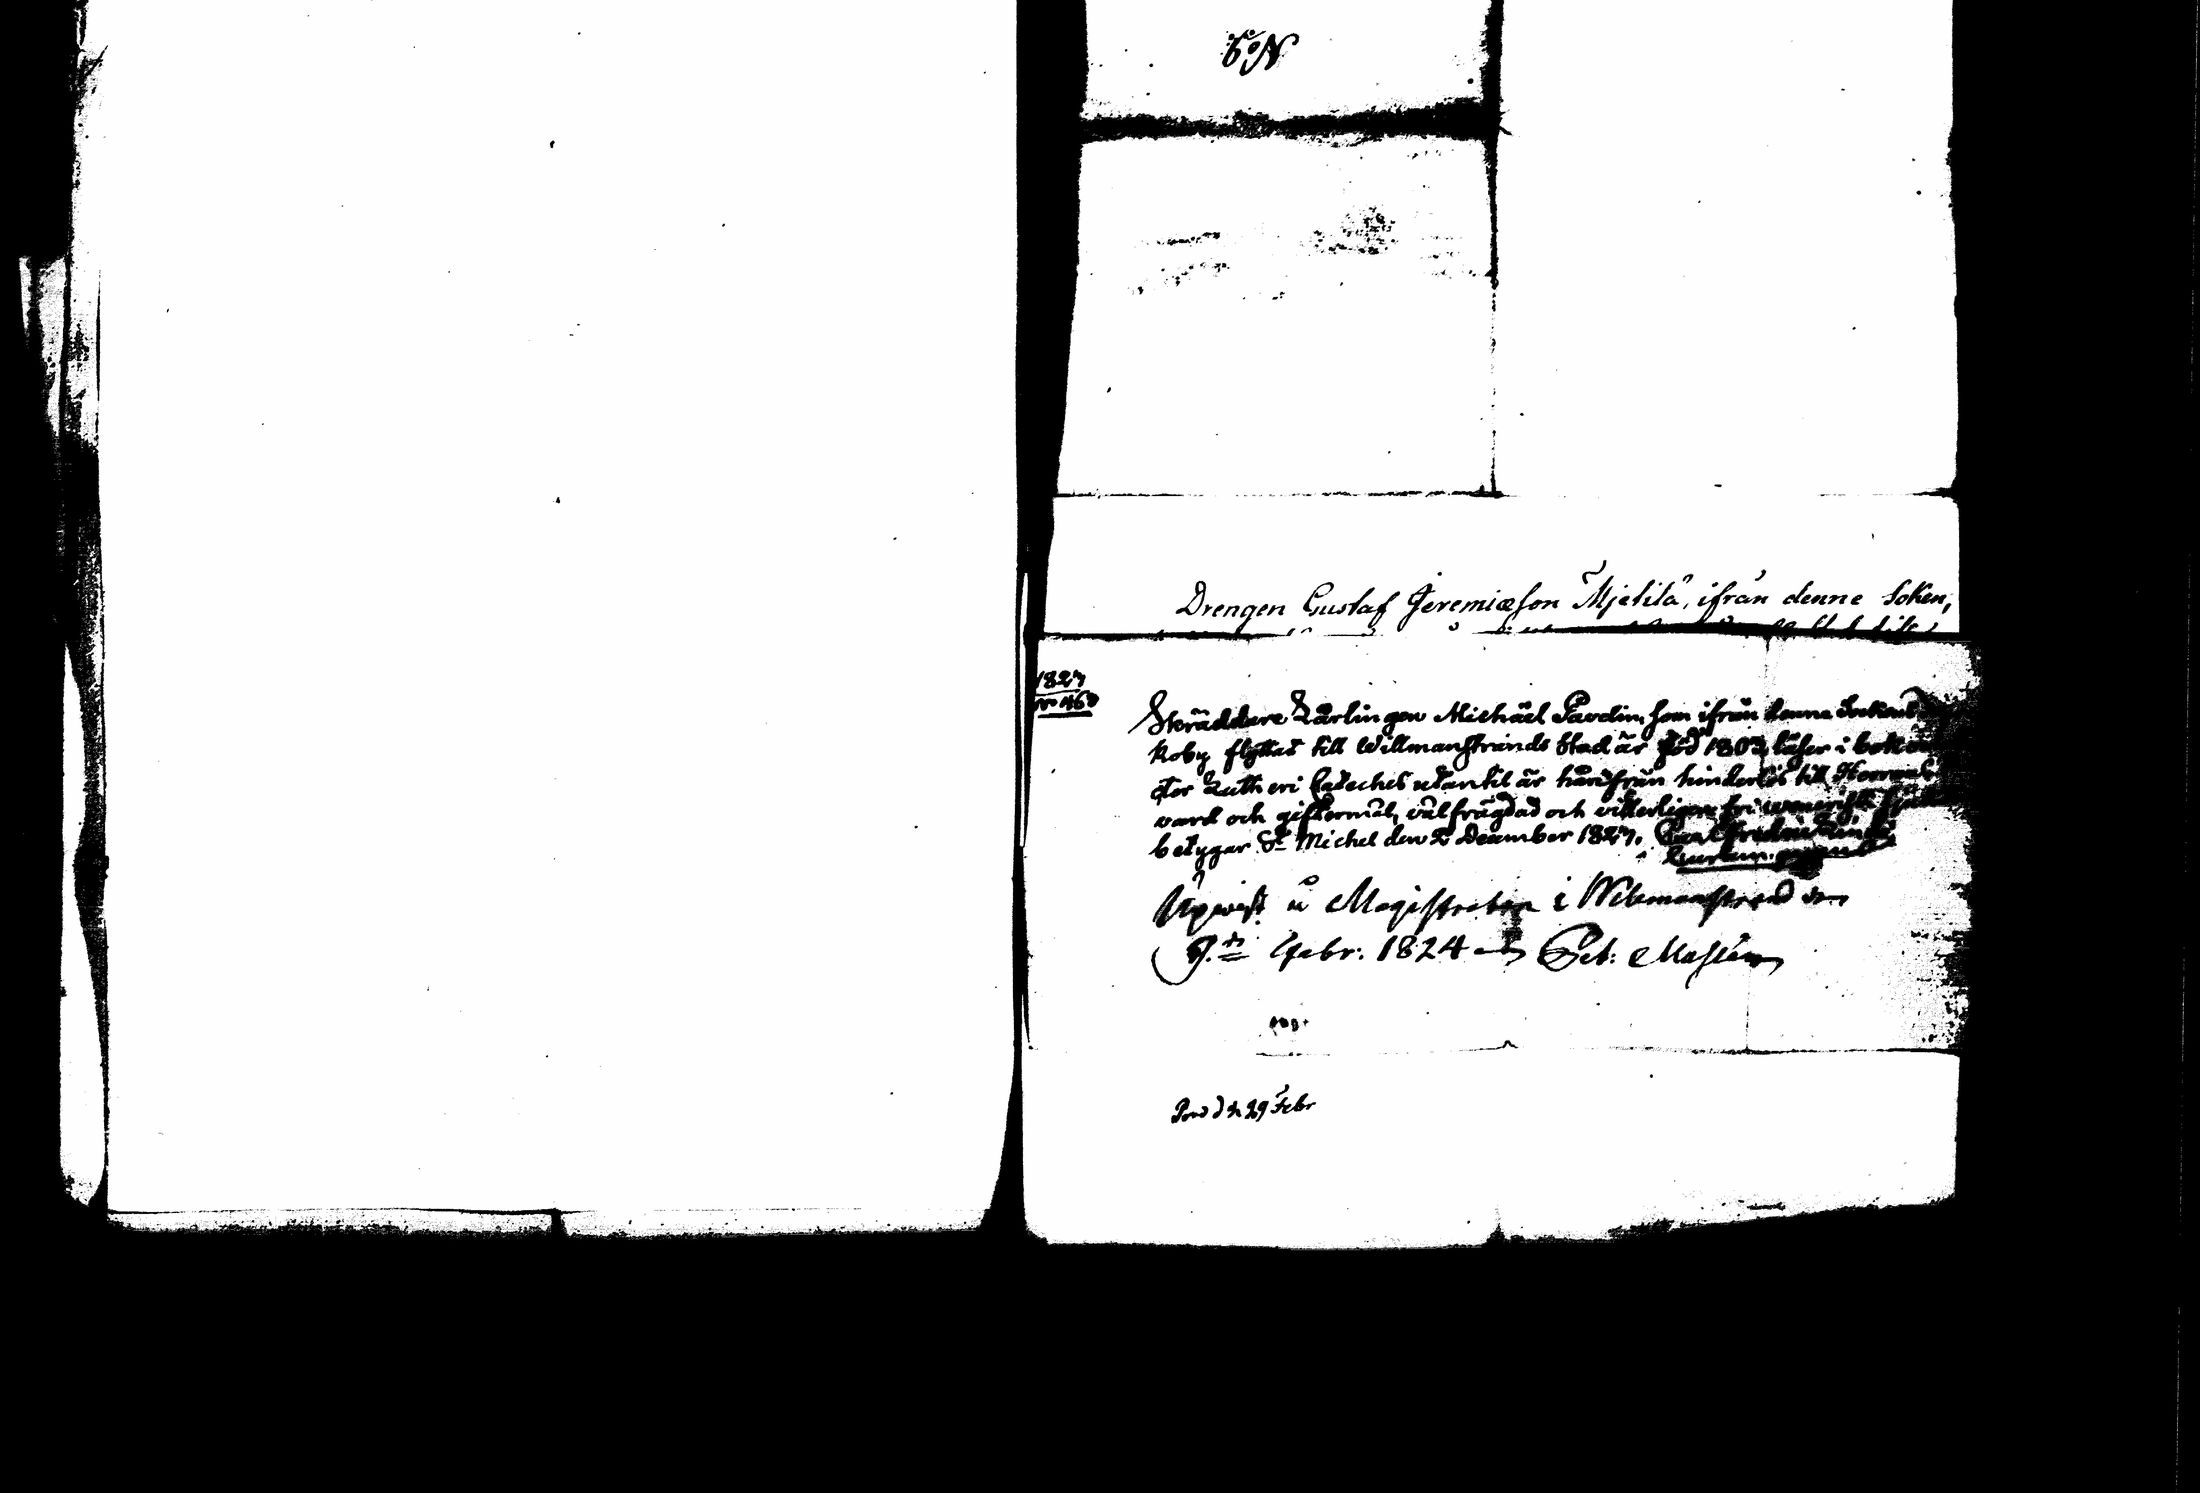 N:o 9
Drengen Gustaf Jeremiæson Mjetilä, ifrån denne Soken,
1827
N 460
Skräddare Lärlingen Michäel Pavdin, som ifrån denne Sockens
Koby flyttat till Willmanstrands Stad är född 1803, läser i boken
ter Lutheri Cateches utantil är härifrån hinderlös till Herrens
vard och giftermål, välfrägdad och vitterligen fri
betygar St Michel den 2 December 1827. Carl Fredric
Upwist u Magistraten i Wilmanstrand den
9.de Febr. 1824 Pet: Maslen
Prod d 29 Febr